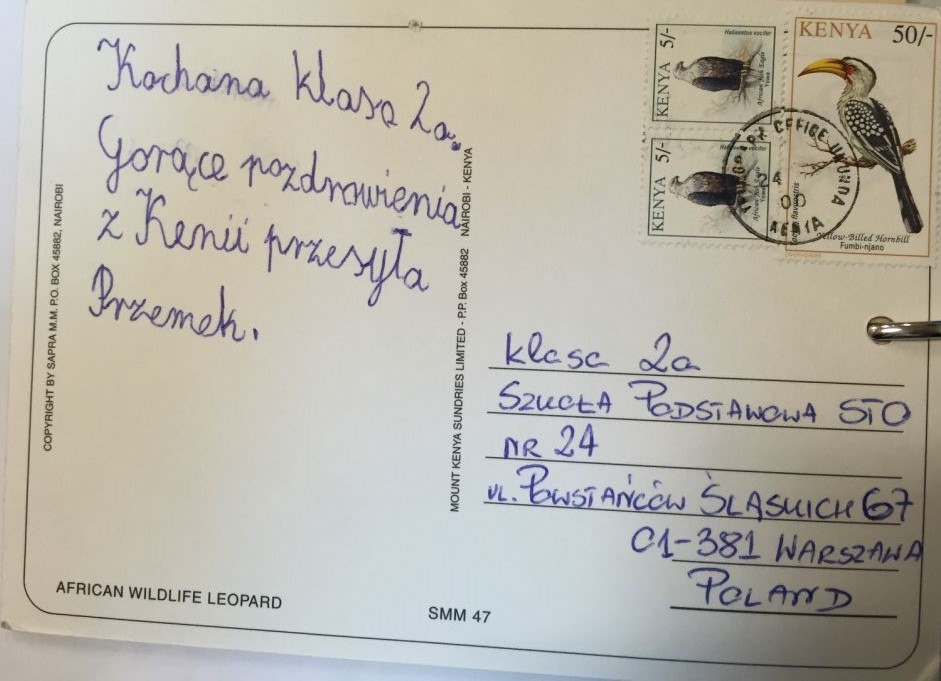 Kochana klasa 2a.
Gorące pozdrowienia
z Kenii przesyła
Przemek.
COPYRIGHT BY SAPRA M.M. P.O. BOX 45882, NAIROBI
MOUNT KENYA SUNDRIES LIMITED - P.P. Box 45882 NAIROBI - KENYA
AFRICAN WILDLIFE LEOPARD
SMM 47
KENYA 5/-
Haliaeetus vocifer
African Fish Eagle
Yowe
KENYA 5/-
Haliaeetus vocifer
African Fish Eagle
KENYA 50/-
flavirostris
Yellow-Billed Hornbill
Fumbi-njano
POST OFFICE UKUNDA
KENYA
klasa 2a
SZKOŁA PODSTAWOWA STO
NR 24
UL. POWSTAŃCÓW ŚLĄSKICH 67
01-381 WARSZAWA
POLAND